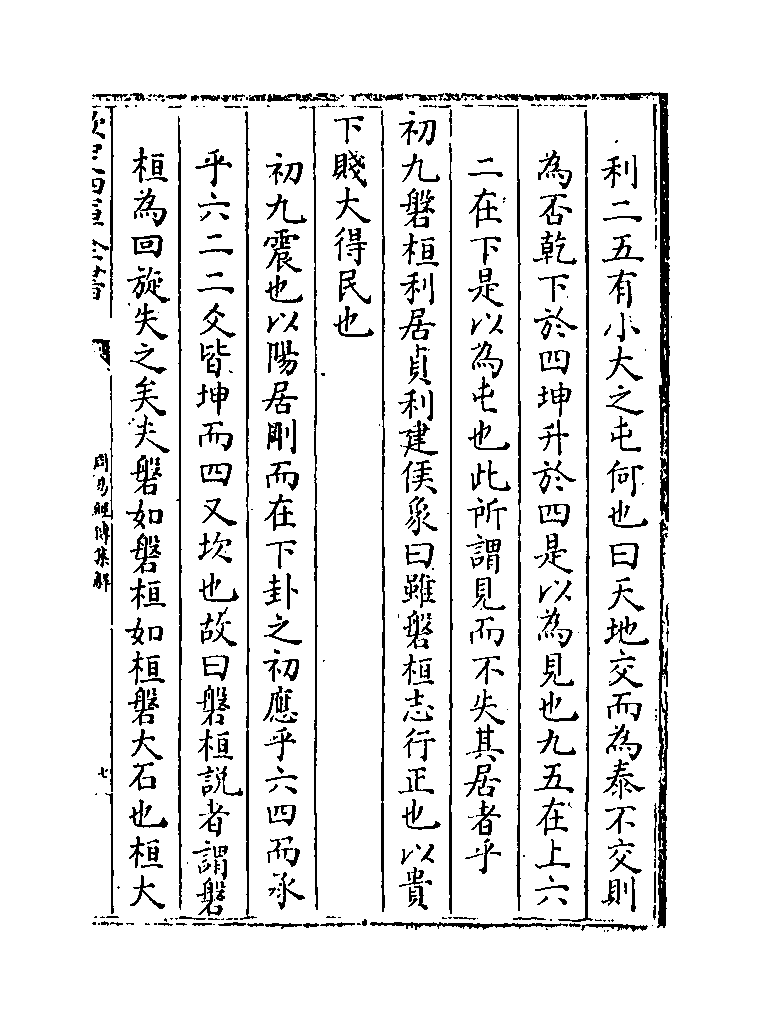 利二五有小大之屯何也曰天地交而為泰不交則
為否乾下於四坤升於四是以為見也九五在上六
二在下是以為屯也此所謂見而不失其居者乎
初九磐桓利居貞利建侯象曰雖磐桓志行正也以貴
下賤大得民也
初九震也以陽居剛而在下卦之初應乎六四而承
乎六二二爻皆坤而四又坎也故曰磐桓說者謂磐
桓為回旋失之矣夫磐如磐桓如桓磐大石也桓大
欽定四庫全書
周易經傳集解
七